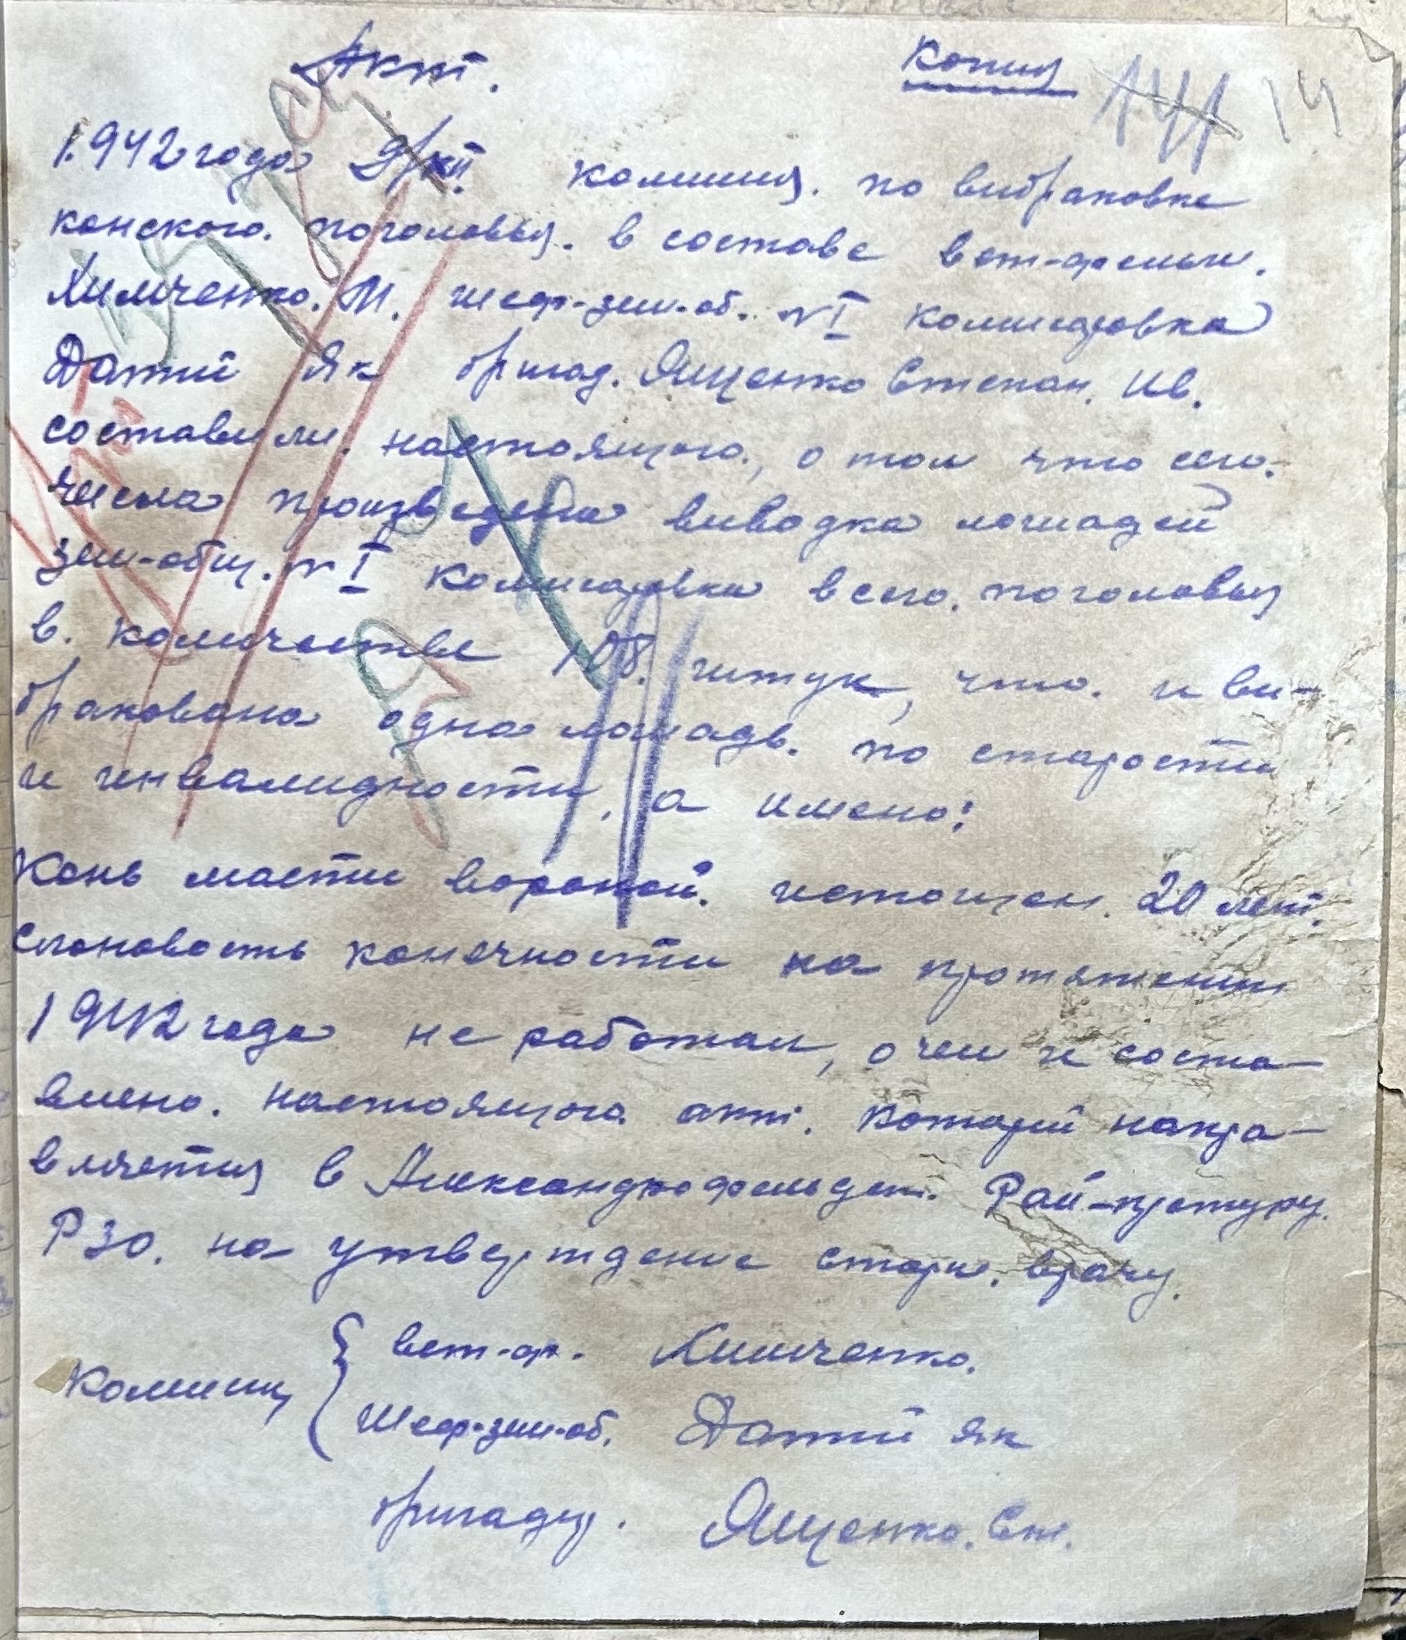 Акт. Копия 14
1.942 года 9/XII комисия. по вибраковке
конского. поголовья. в составе вет-фельш.
Химченко. М. шеф-зем-об. №I комишовка
Датий Як бригад. Ященко Степан. Ив.
составили. настоящого., о том что сего.
числа произведена виводка лошадей
зем-общ. №I комишовка всего. поголовья
в. количестве 108. штук, что. и ви-
бракована одна лошадь. по старости
и инвалидности, а имено:
Конь масти вороной. истощен. 20 лет.
слоновость конечности на протяжении
1942 года не работал, о чем и соста-
влено. настоящого акт. которий напра-
вляется в Александрофельдск. Рай-претуру.
РЗО. на утверждение старш. врачу.
Комисия { вет-ф. Химченко.
Шеф-зем-об. Датий Як
бригадир. Ященко. Ст.